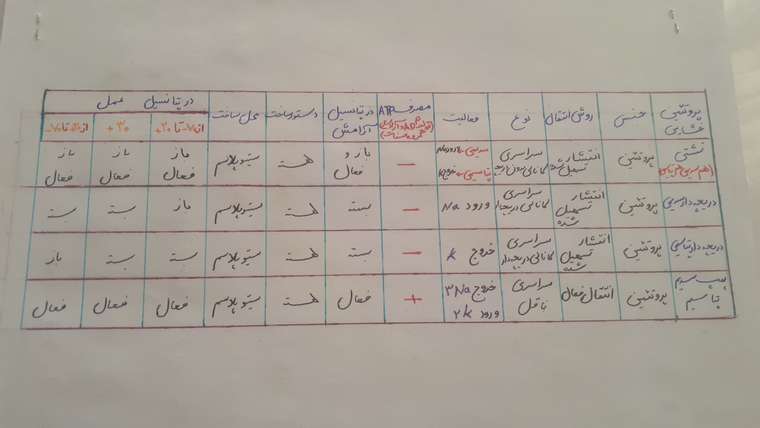 پروتئین غشایی | جنس | روش انتقال | نوع | فعالیت | مصرف ATP | در پتانسیل آرامش | دستور ساخت | محل ساخت | در پتانسیل عمل
از ۷۰- تا ۳۰+ | ۳۰+ | از ۳۰+ تا ۷۰-
نشتی (هم سدیمی هم پتاسیمی) | پروتئین | انتشار تسهیل شده | سراسری کانالی بدون دریچه | سدیمی ← ورود Na پتاسیمی ← خروج K | − | باز و فعال | هسته | سیتوپلاسم | باز فعال | باز فعال | باز فعال
دریچه دار سدیمی | پروتئین | انتشار تسهیل شده | سراسری کانالی دریچه دار | ورود Na | − | بسته | هسته | سیتوپلاسم | باز | بسته | بسته
دریچه دار پتاسیمی | پروتئین | انتشار تسهیل شده | سراسری کانالی دریچه دار | خروج K | − | بسته | هسته | سیتوپلاسم | بسته | بسته | باز
پمپ سدیم پتاسیم | پروتئین | انتقال فعال | سراسری ناقل | خروج ۳Na ورود ۲K | + | فعال | هسته | سیتوپلاسم | فعال | فعال | فعال